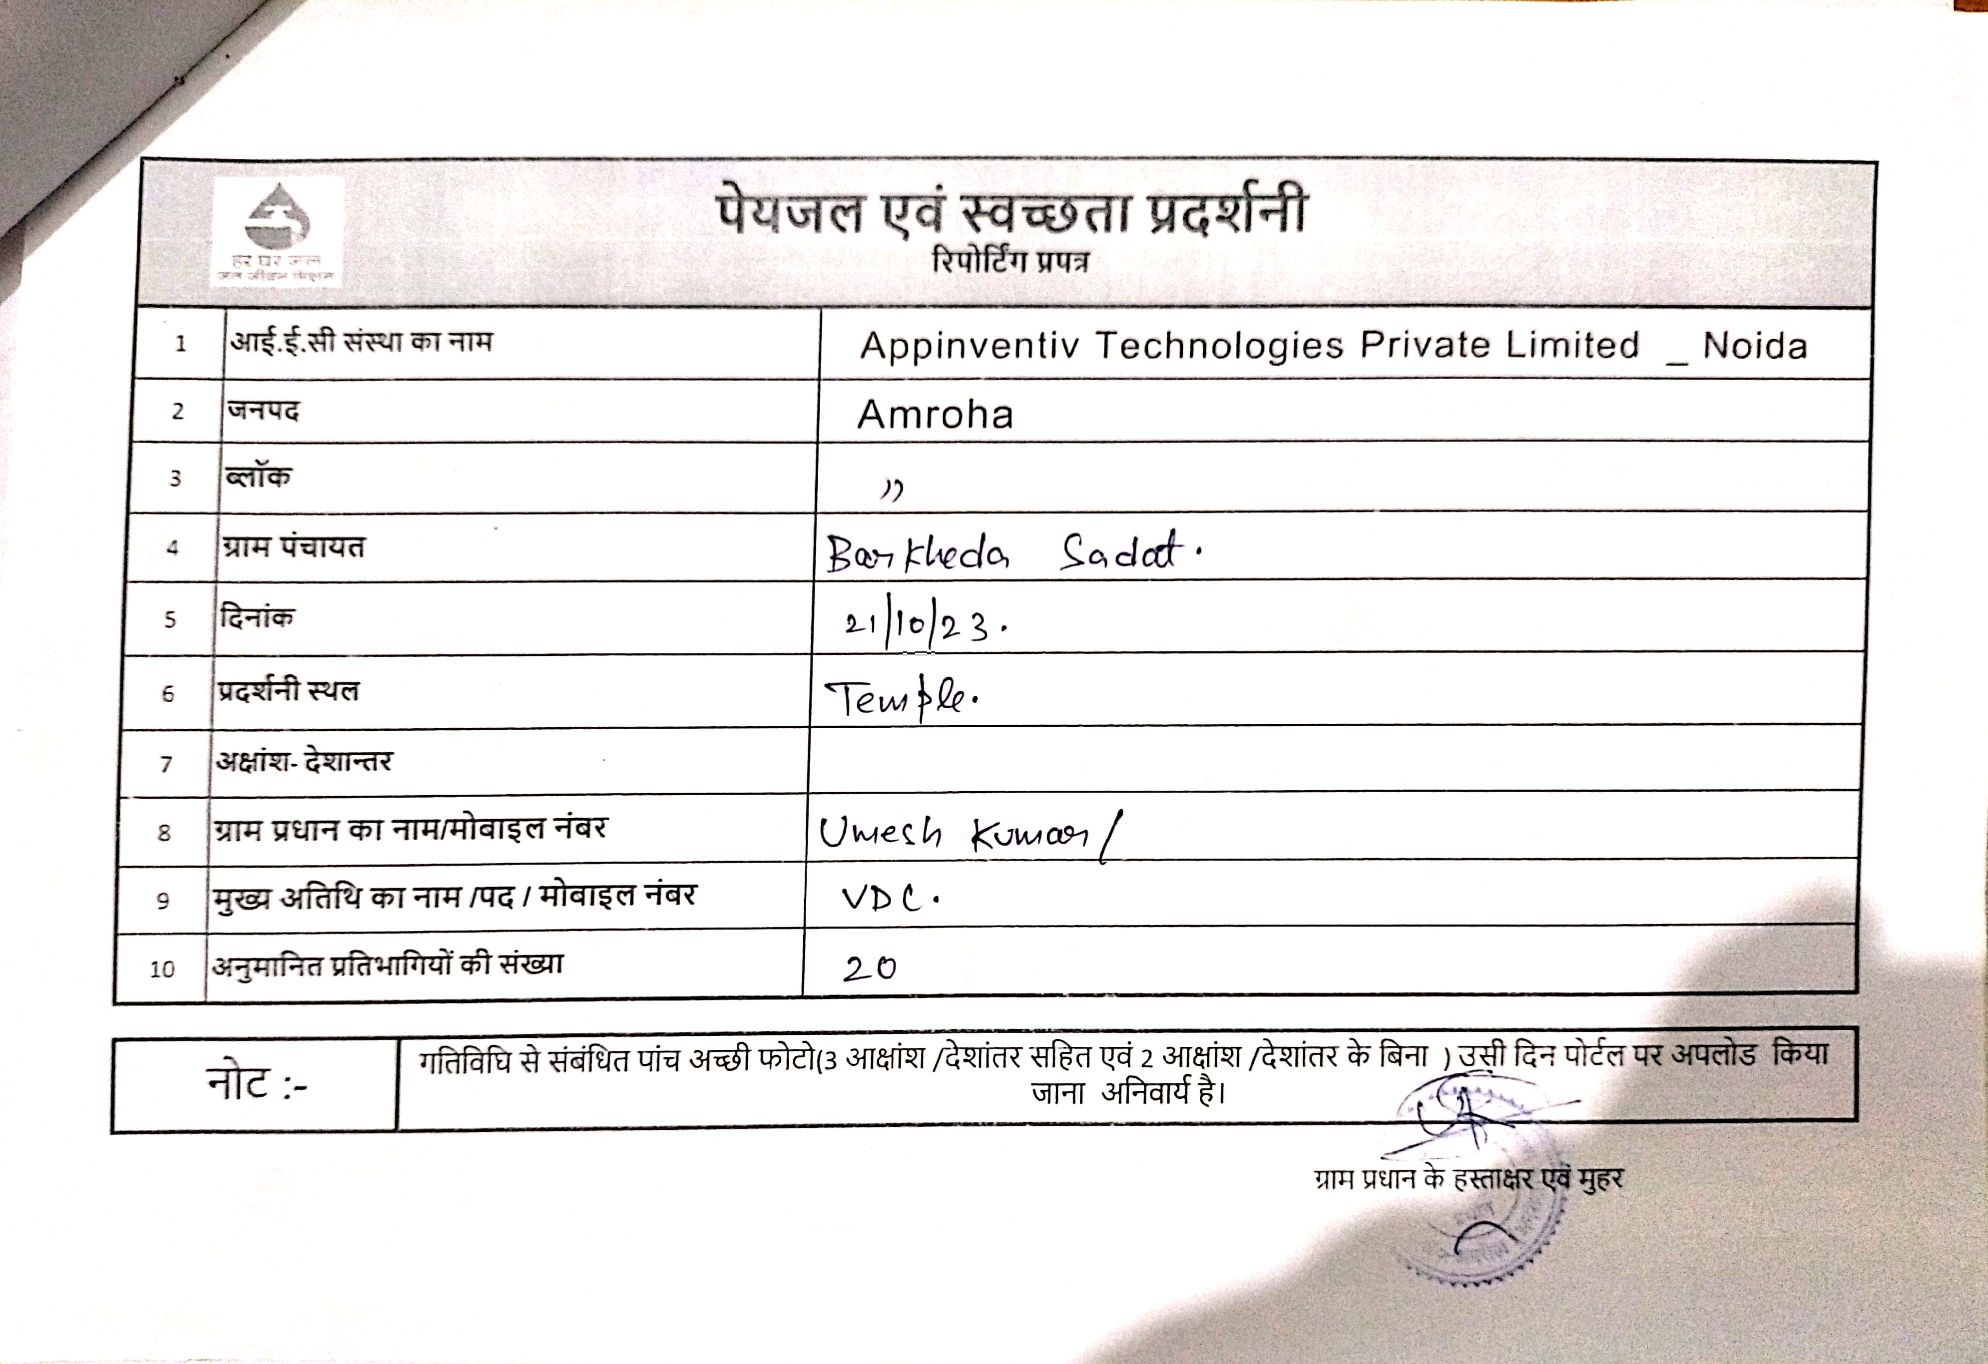 हर घर जल
जल जीवन मिशन
पेयजल एवं स्वच्छता प्रदर्शनी
रिपोर्टिंग प्रपत्र
1 आई.ई.सी संस्था का नाम Appinventiv Technologies Private Limited _ Noida
2 जनपद Amroha
3 ब्लॉक ,,
4 ग्राम पंचायत Barkheda Sadat.
5 दिनांक 21/10/23.
6 प्रदर्शनी स्थल Temple.
7 अक्षांश- देशान्तर
8 ग्राम प्रधान का नाम/मोबाइल नंबर Umesh Kumar/
9 मुख्य अतिथि का नाम /पद / मोबाइल नंबर VDC.
10 अनुमानित प्रतिभागियों की संख्या 20
नोट :- गतिविधि से संबंधित पांच अच्छी फोटो(3 आक्षांश /देशांतर सहित एवं 2 आक्षांश /देशांतर के बिना ) उसी दिन पोर्टल पर अपलोड किया
जाना अनिवार्य है।
ग्राम प्रधान के हस्ताक्षर एवं मुहर